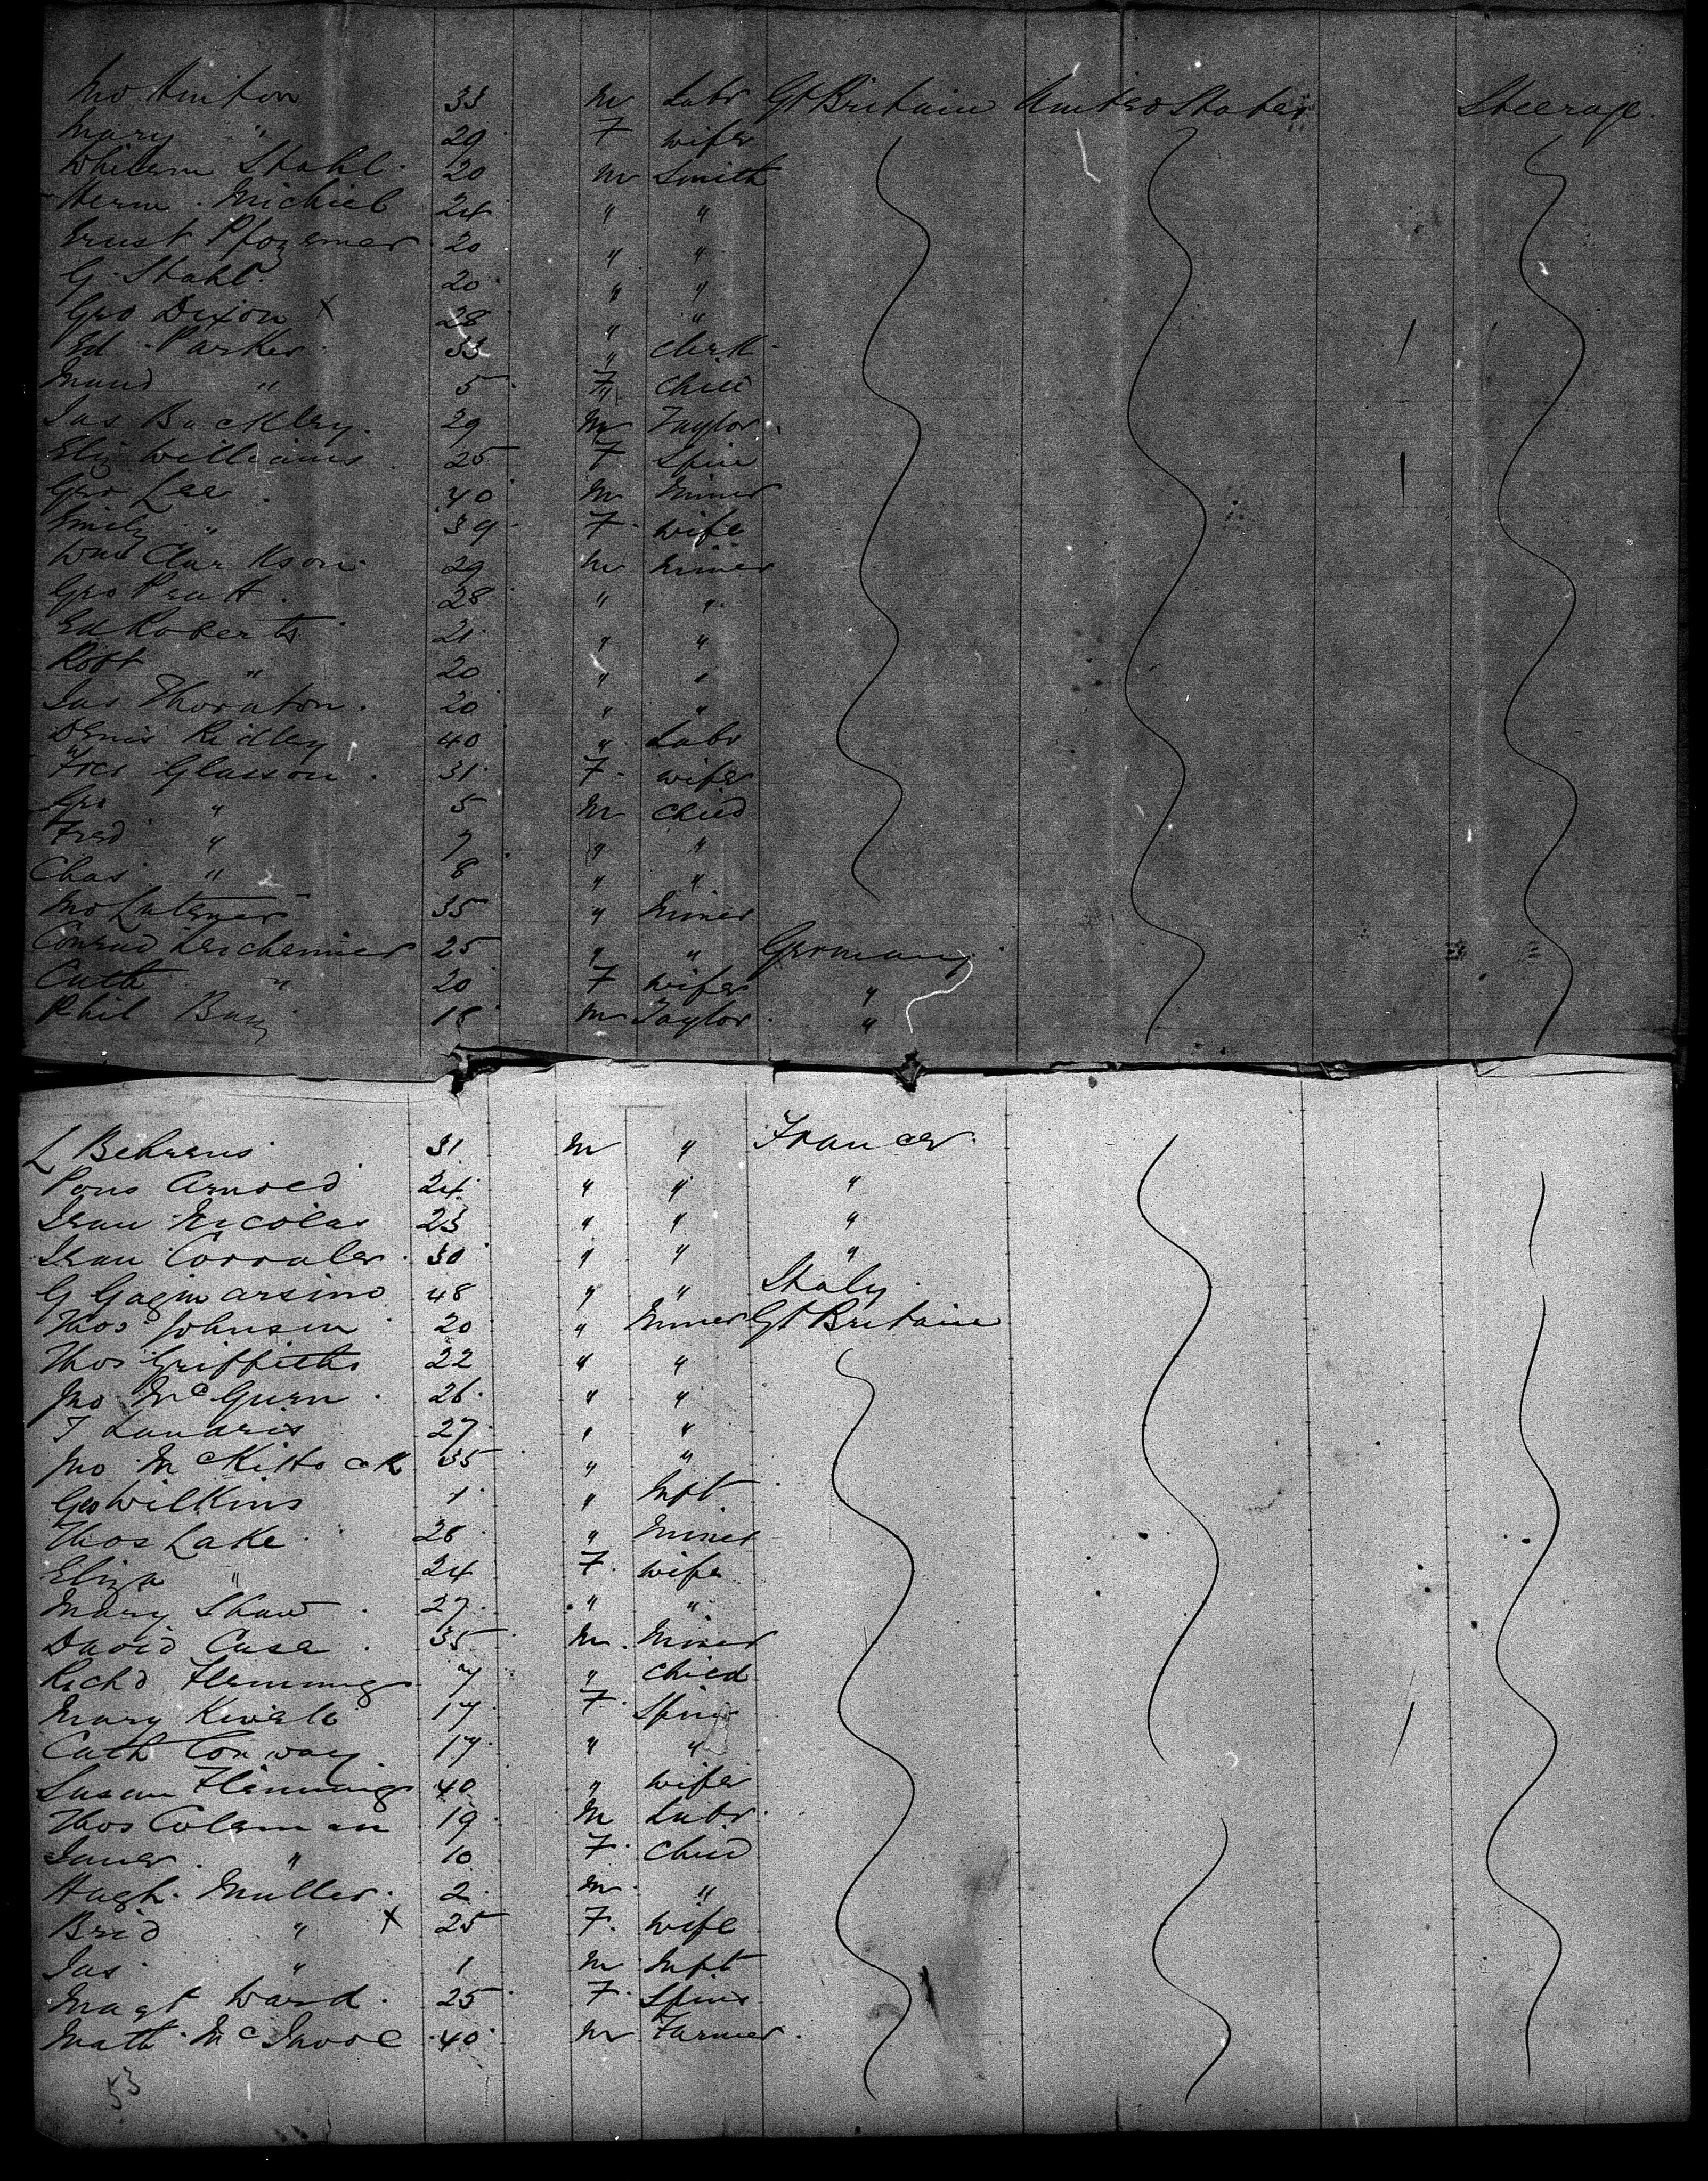 Jno Hinton 33 M Labr Gt Britain United States Steerage
Mary " 29 F wife
Whilem Stahl 20 M Smith
Herm Michiel 24 " "
Ernst 20 " "
G. Stahl 20 " "
Geo Dixon X 28 " "
Ed Parker 33 " Clerk
Maud " 5 F Child
Jas Buckley 29 M Taylor
Eliz Williams 25 F Spin
Geo Lee 40 M Miner
Emily " 39 F wife
Wm Clarkson 29 M Miner
Geo Pratt 28 " "
Ed Roberts 21 " "
Robt " 20 " "
Jas Thornton 20 " "
Denis Ridley 40 " Labr
Frcs Glasson 31 F wife
Geo " 5 M Child
Fred " 7 " "
Chas " 8 " "
Jno 35 " Miner
Conrad 25 " " Germany
Cath " 20 F wife "
Phil M Taylor "
L Behrens 31 M " France
Pons Arnold 24 " " "
Jean Nicolas 23 " " "
Jean 30 " " "
G 48 " " Italy
Thos Johnson 20 " Miner Gt Britain
Thos Griffiths 22 " "
Jno McGurn 26 " "
T 27 " "
Jno McKittock 35 " "
Geo Wilkins 1 " Inft
Thos Lake 28 " Miner
Eliza " 24 F wife
Mary Shaw 27 " "
David Case 35 M Miner
Richd Flemming 7 " Child
Mary 17 F Spin
Cath Conway 17 " "
Susan Flemming 40 " wife
Thos Coleman 19 M Labr
Janer " 10 F Child
Hugh Muller 2 M "
Brid " X 25 F wife
Jas " 1 M Inft
Magt Ward 25 F Spin
Matt 40 M Farmer
53